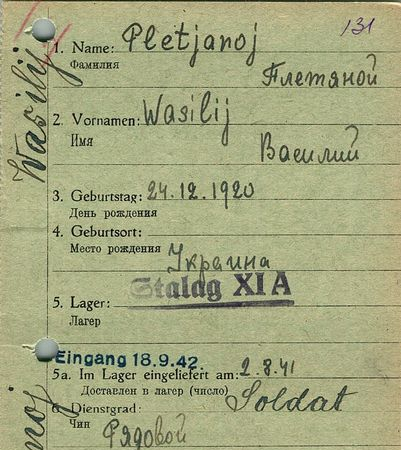 131
1. Name: Pletjanoj
Фамилия
Плетяной
2. Vornamen: Wasilij
Имя
Василий
3. Geburtstag: 24.12.1920
День рождения
4. Geburtsort:
Место рождения
Украина
Stalag XI A
5. Lager:
Лагерь
Eingang 18.9.42.
5a. Im Lager eingeliefert am: 2.8.41
Доставлен в лагер (число)
6. Dienstgrad: Soldat
Чин
Рядовой
Wasilij
noj